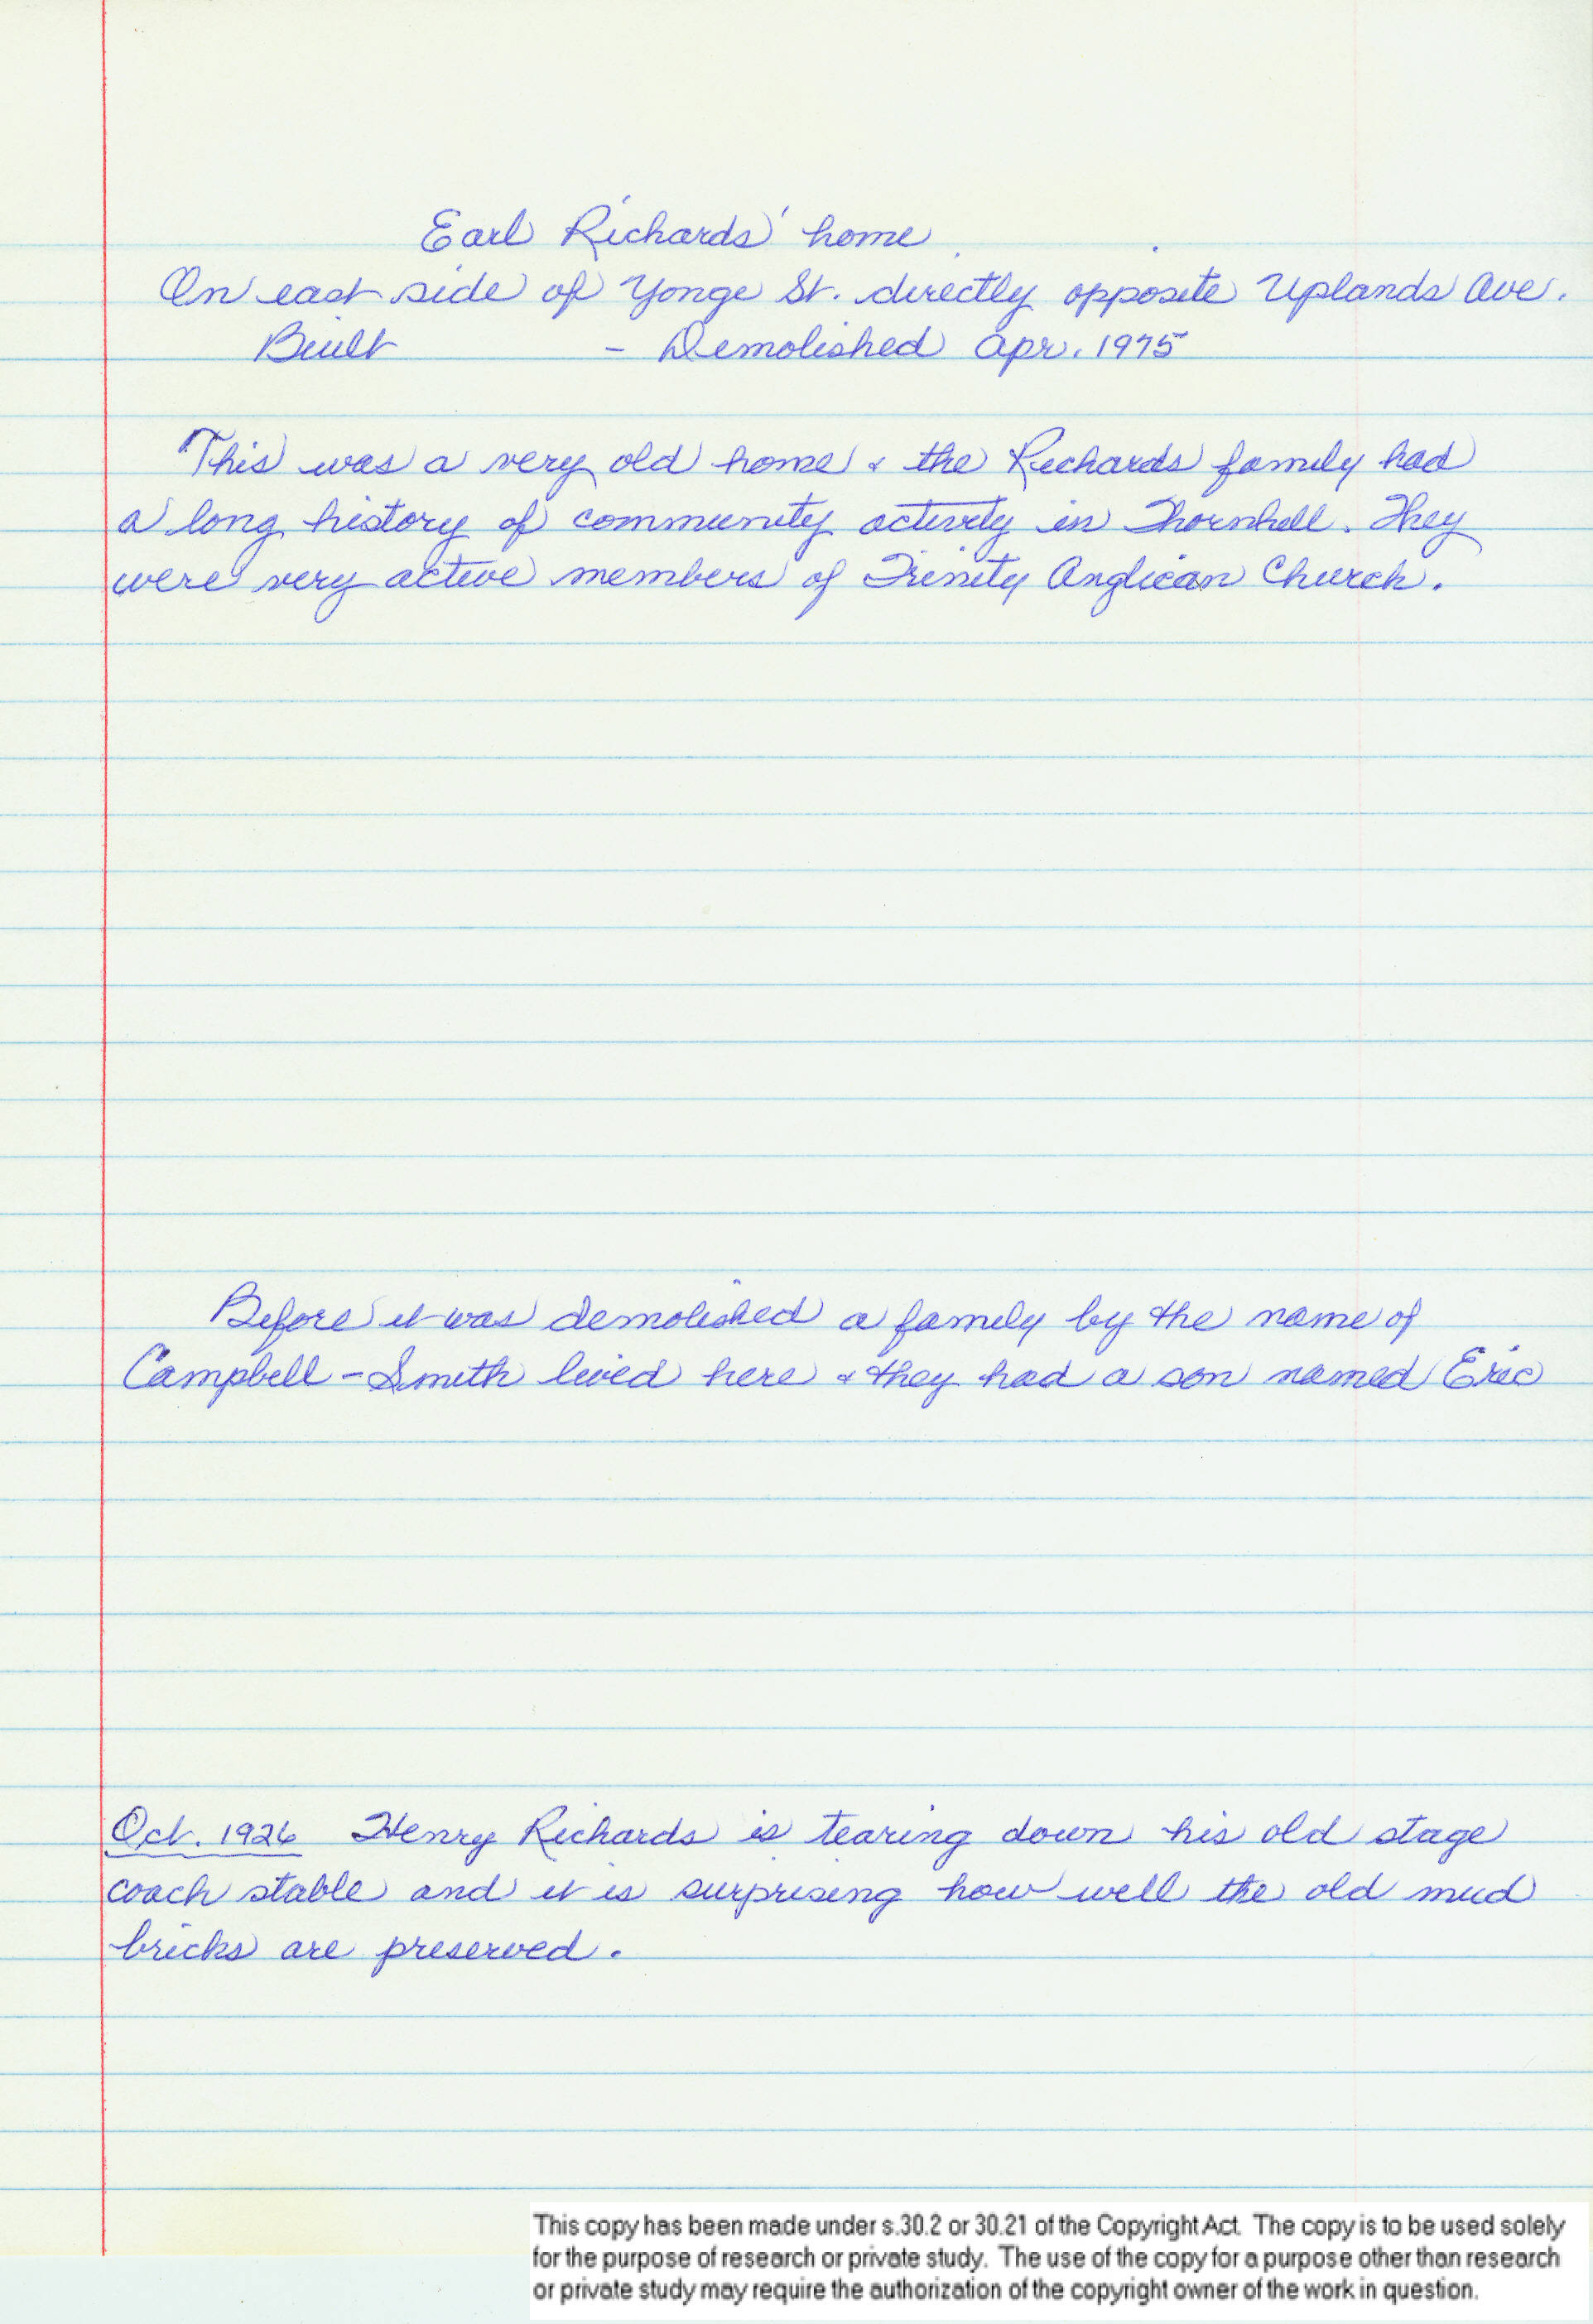 Earl Richards' home
On east side of Yonge St. directly opposite Uplands Ave.
Built - Demolished Apr. 1975
This was a very old home & the Richards family had
a long history of community activity in Thornhill. They
were very active members of Trinity Anglican Church.
Before it was demolished a family by the name of
Campbell-Smith lived here & they had a son named Eric
Oct. 1926 Henry Richards is tearing down his old stage
coach stable and it is surprising how well the old mud
bricks are preserved.
This copy has been made under s.30.2 or 30.21 of the Copyright Act. The copy is to be used solely
for the purpose of research or private study. The use of the copy for a purpose other than research
or private study may require the authorization of the copyright owner of the work in question.